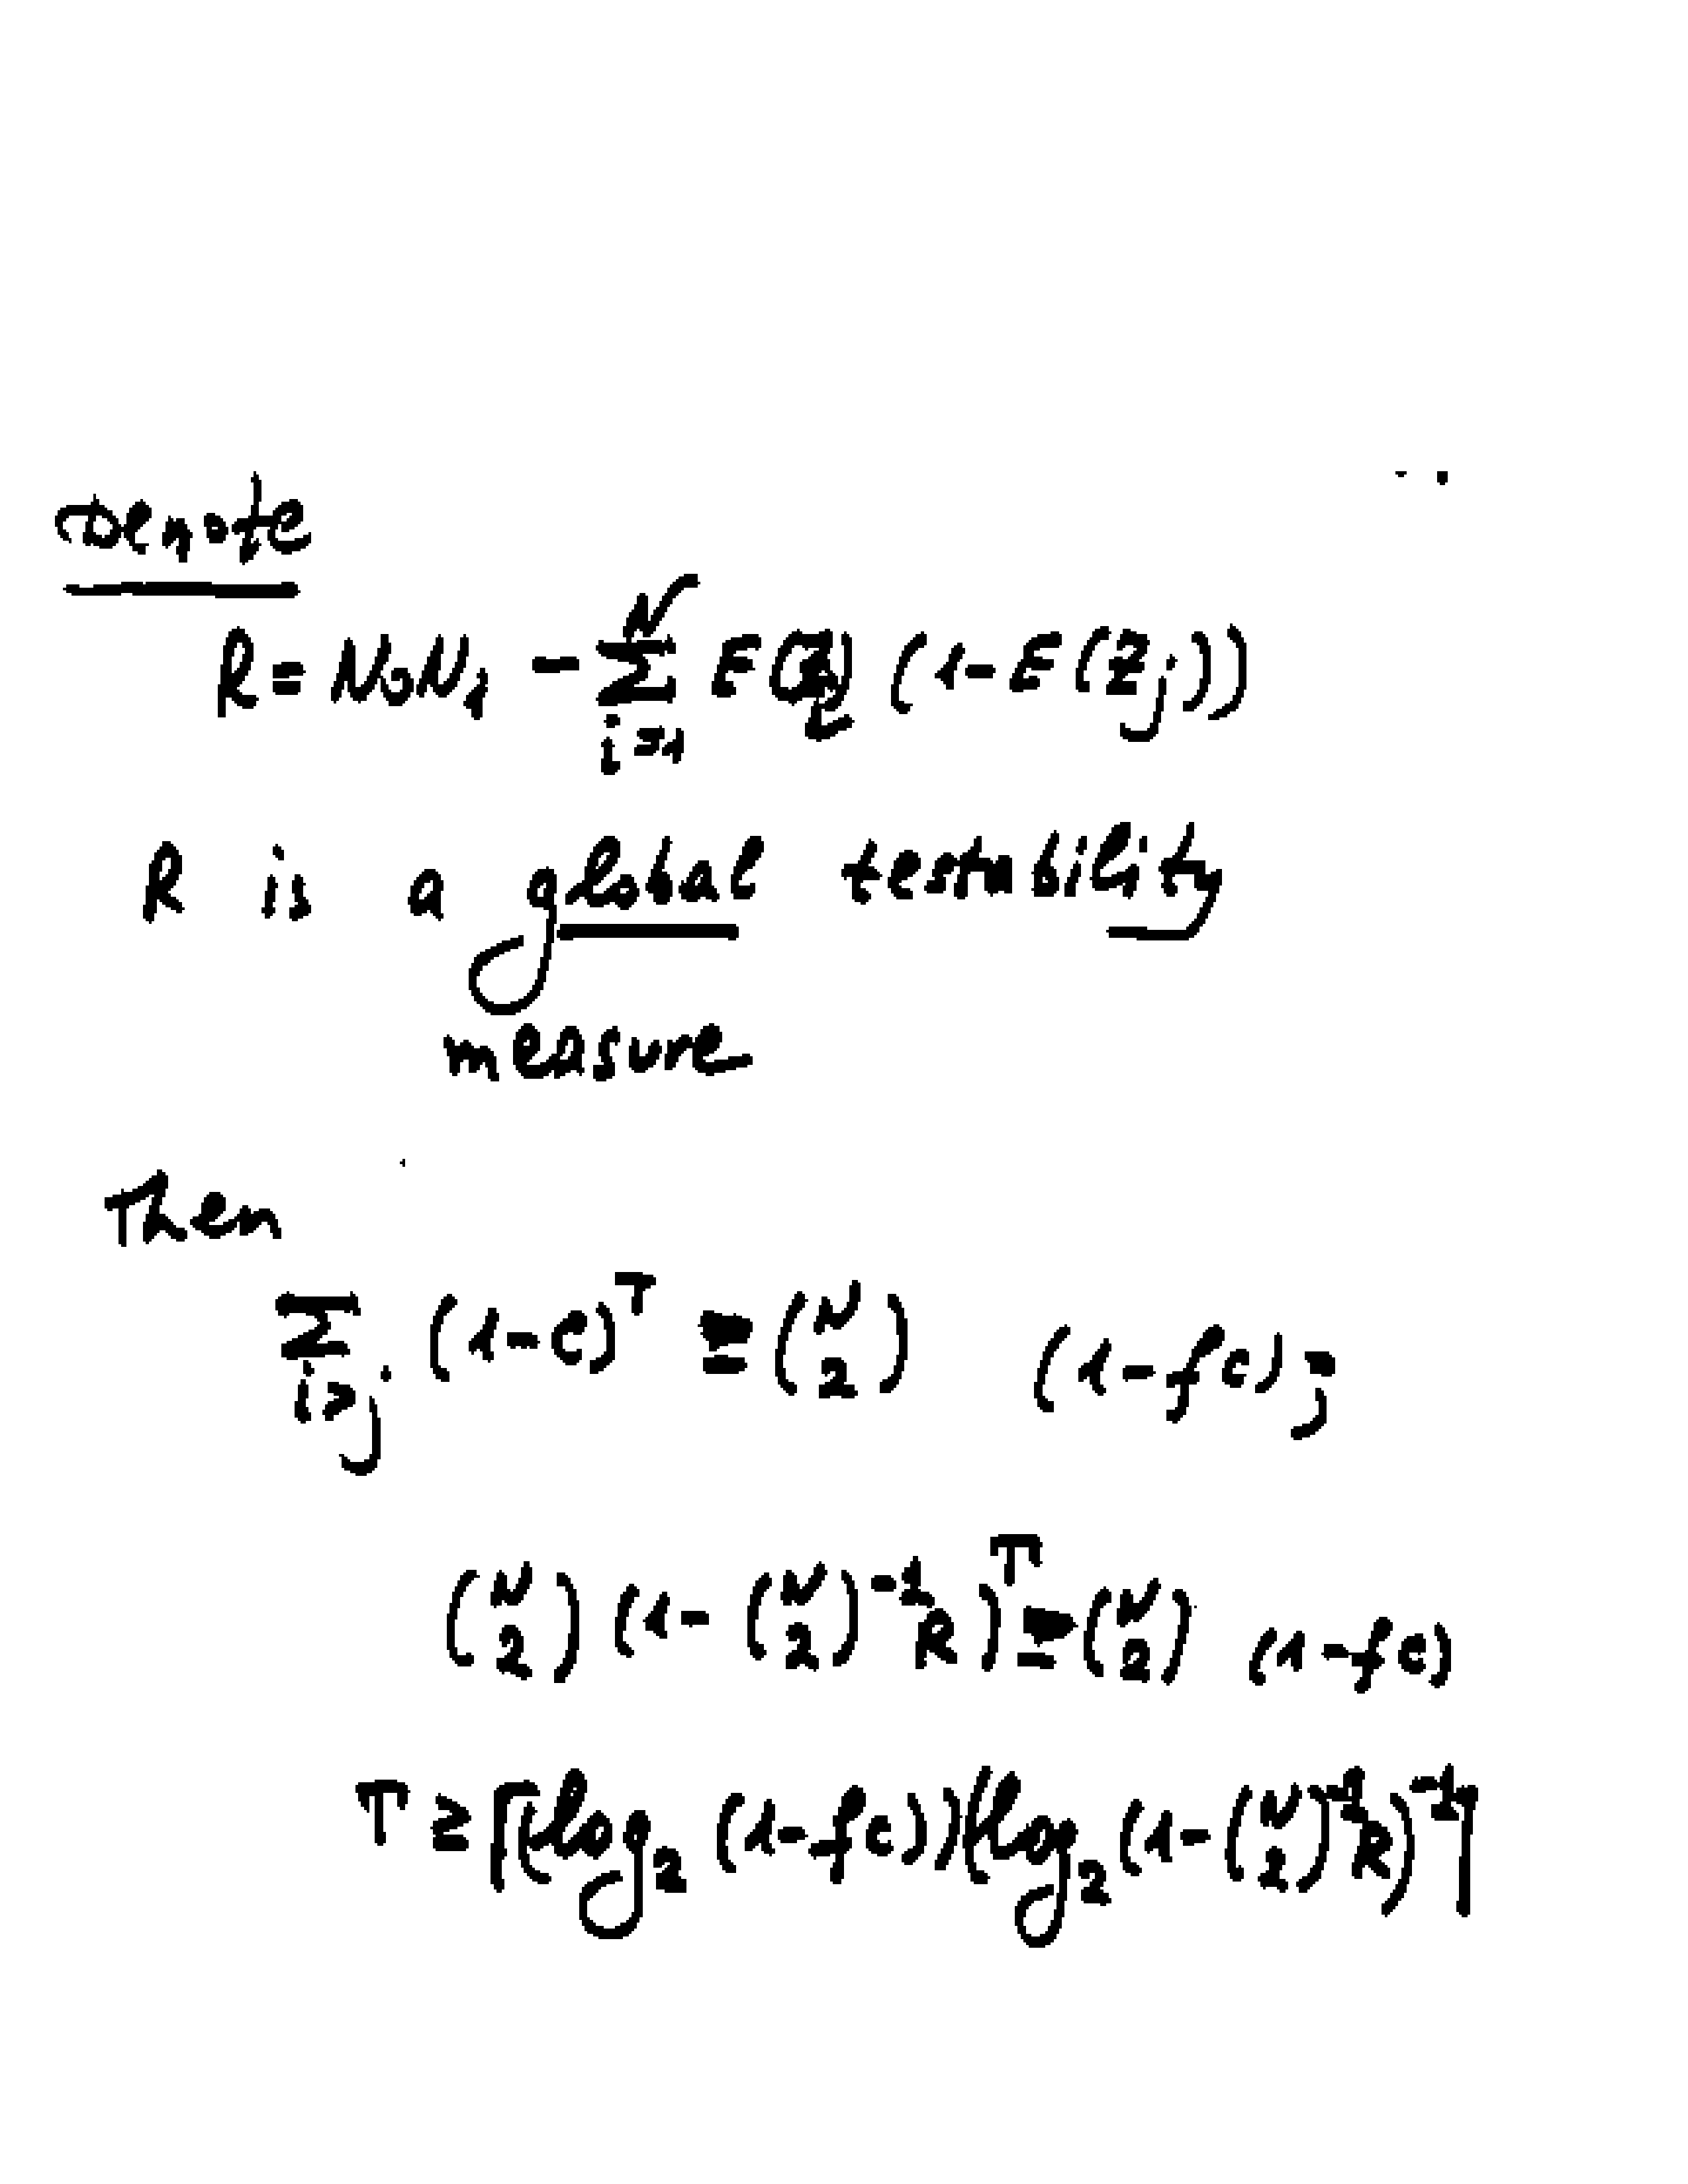 Denote
R = N₀N₁ - ∑_{i=1}^{N} E(Z_i) (1-E(Z_j))
R is a global testability
measure
Then
∑_{i>j} (1-C)^T = (N 2) (1-fc);
(N 2) (1-(N 2)^{-1} R)^T = (N 2) (1-fc)
T ≥ ⌈(log₂ (1-fc))(log₂ (1-(N 2)^{-1} R)^{-1}⌉